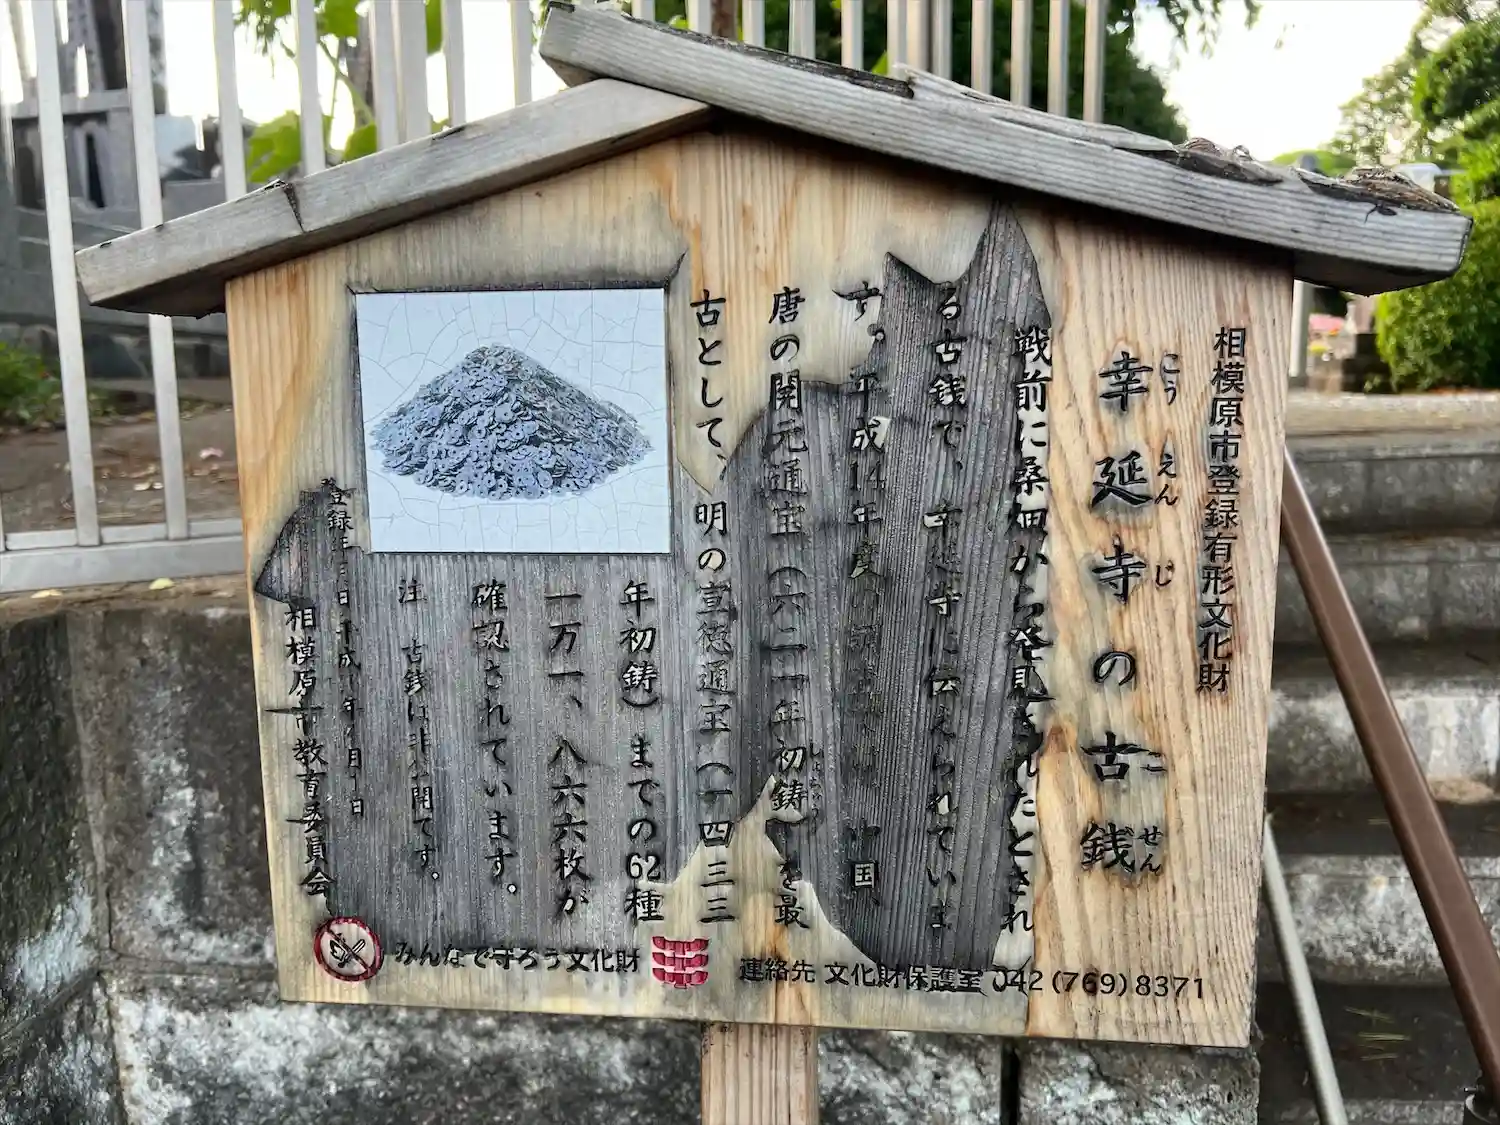 相模原市登録有形文化財
幸延寺の古銭
こうえんじ こせん
戦前に桑畑から発見されたとされ
る古銭で、幸延寺に伝えられていま
す。平成14年度の 中国、
唐の開元通宝(六二一年初鋳)を最
しょちゅう
古として、明の宣徳通宝(一四三三
年初鋳)までの62種
一万一、八六六枚が
確認されています。
注 古銭は非公開です。
登録年月日 平成
相模原市教育委員会
みんなで守ろう文化財
連絡先 文化財保護室 042(769)8371